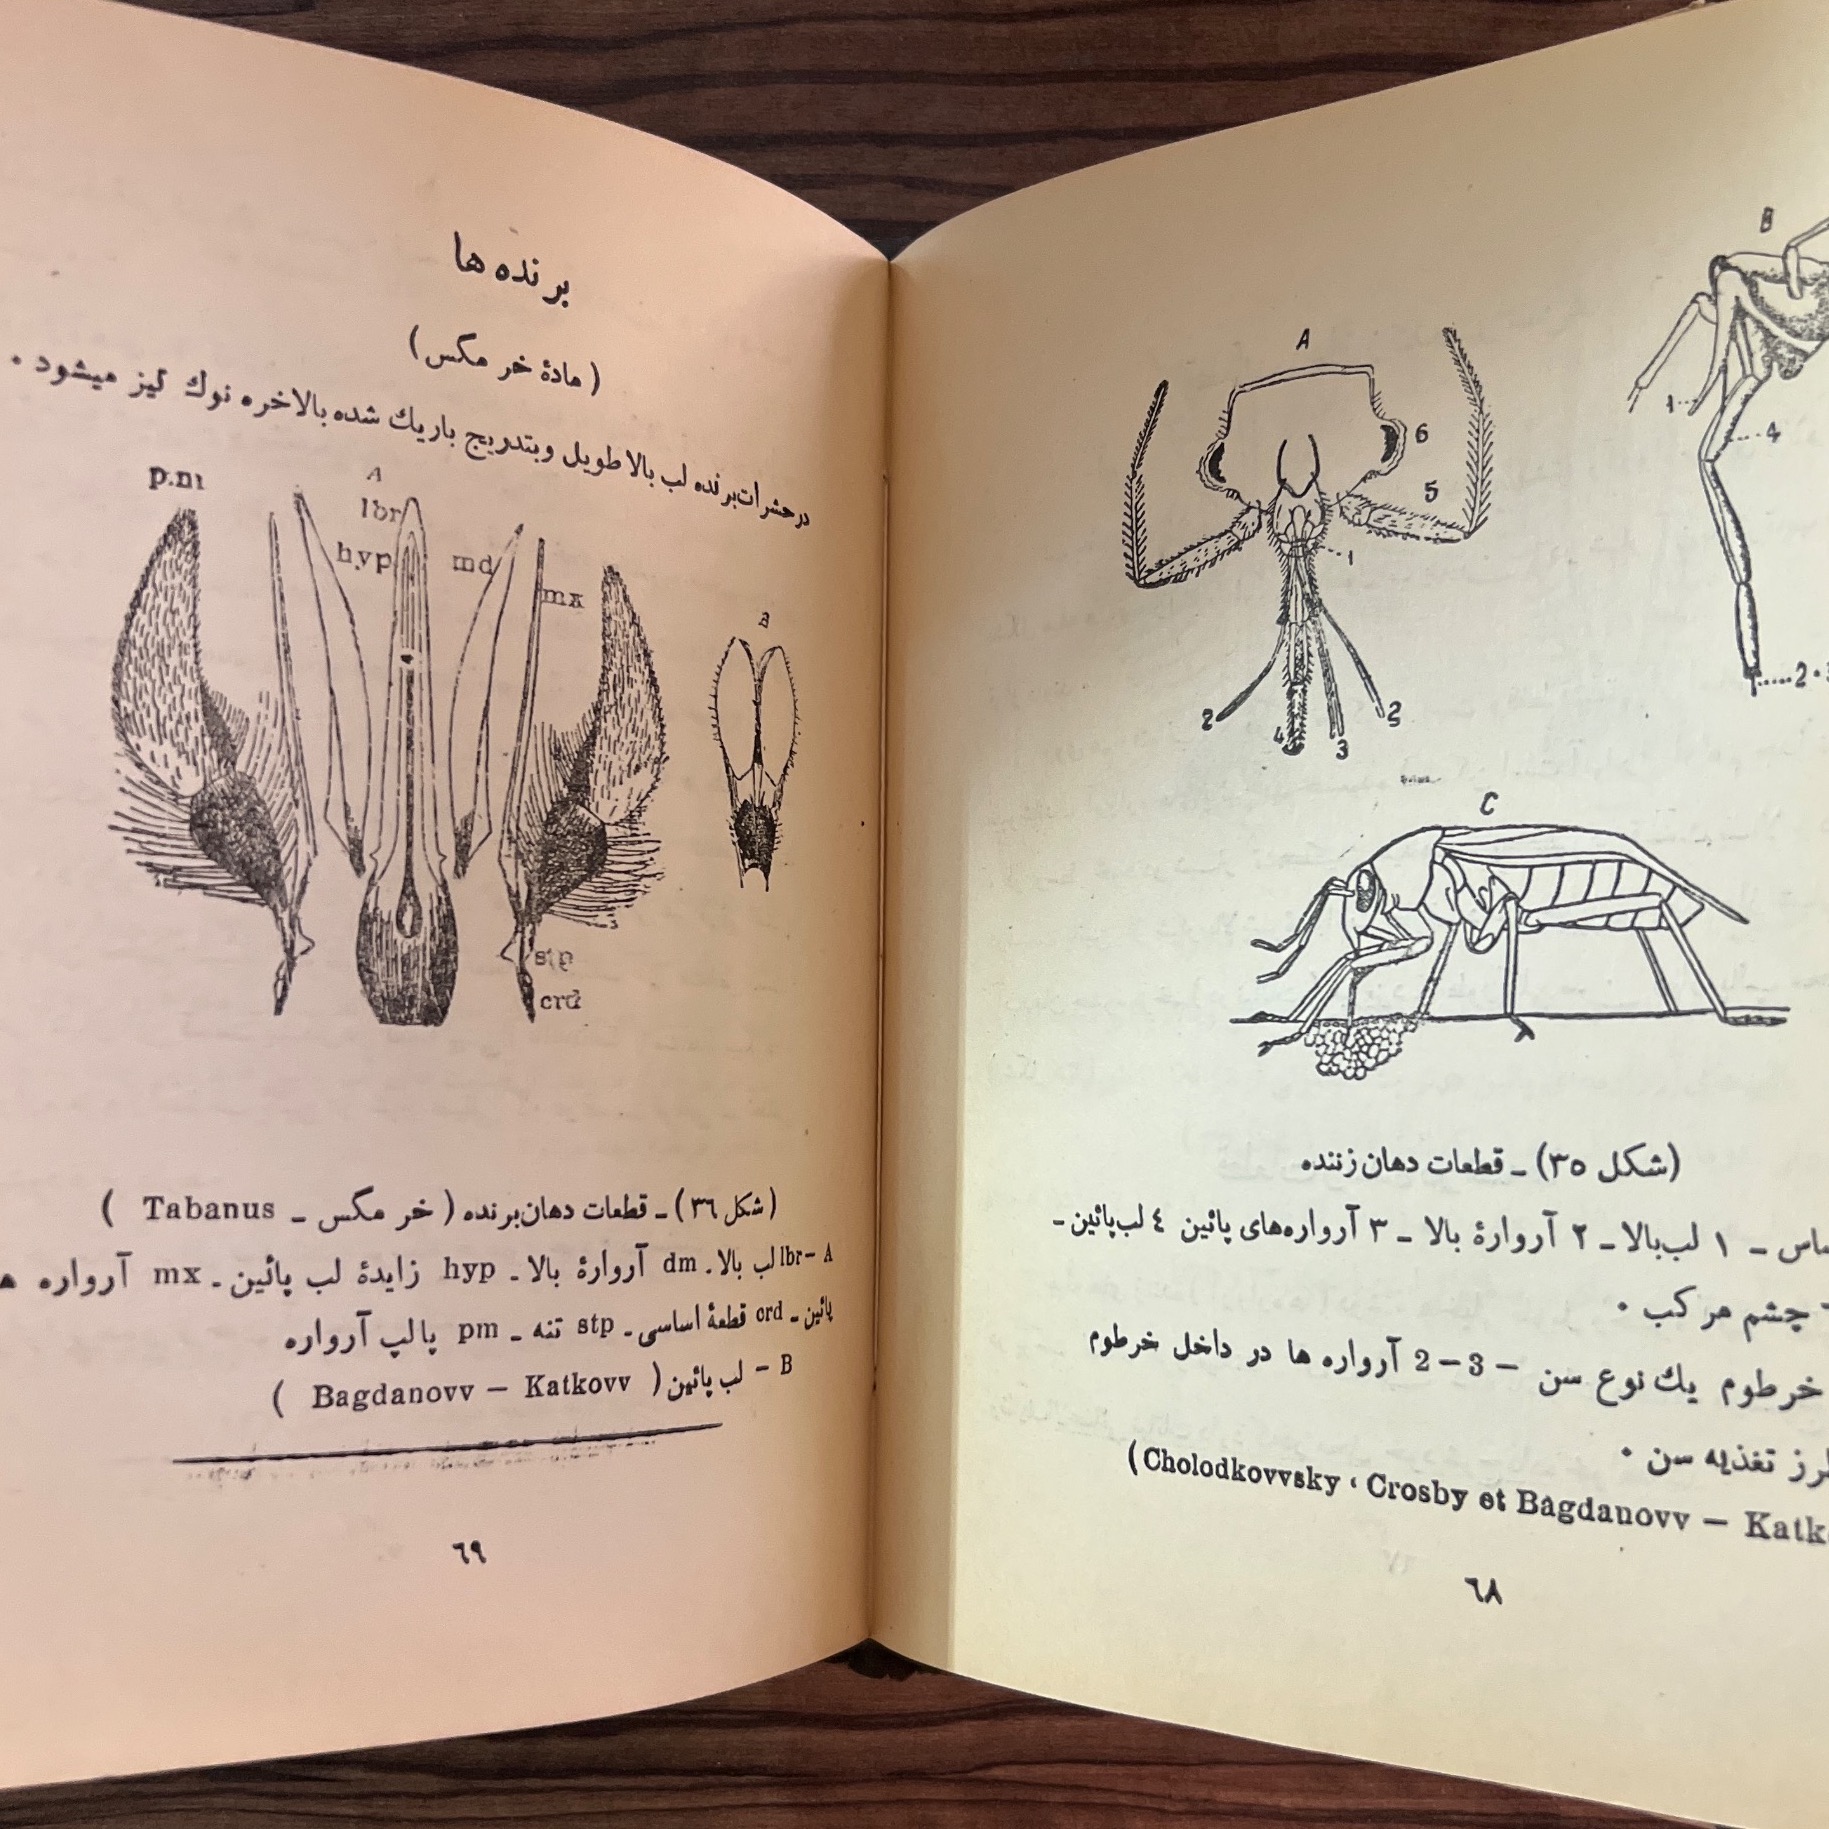 A
6
5
1
2
4
3
2
B
1
4
2
C
(شکل ٣٥) ـ قطعات دهان زننده
ـ ١ لب‌بالا ـ ٢ آروارهٔ بالا ـ ٣ آرواره‌های پائین ٤ لب‌پائین ـ
چشم مرکب ٠
خرطوم یك نوع سن — 3 — 2 آرواره ها در داخل خرطوم
تغذیه سن ٠
(Cholodkovvsky ، Crosby et Bagdanovv —
٦٨
برنده ها
( مادهٔ خر مگس )
در حشرات‌برنده لب بالا طویل وبتدریج باریك شده بالاخره نوك تیز میشود ٠
p.m
A
lbr
hyp
md
mx
B
stp
crd
(شکل ٣٦) ـ قطعات دهان‌برنده ( خر مگس ـ Tabanus )
A —lbr لب بالا . dm آروارهٔ بالا ـ hyp زایدهٔ لب پائین ـ mx آرواره
پائین ـ crd قطعهٔ اساسی ـ stp تنه ـ pm پالپ آرواره
B — لب پائین ( Bagdanovv — Katkovv )
٦٩